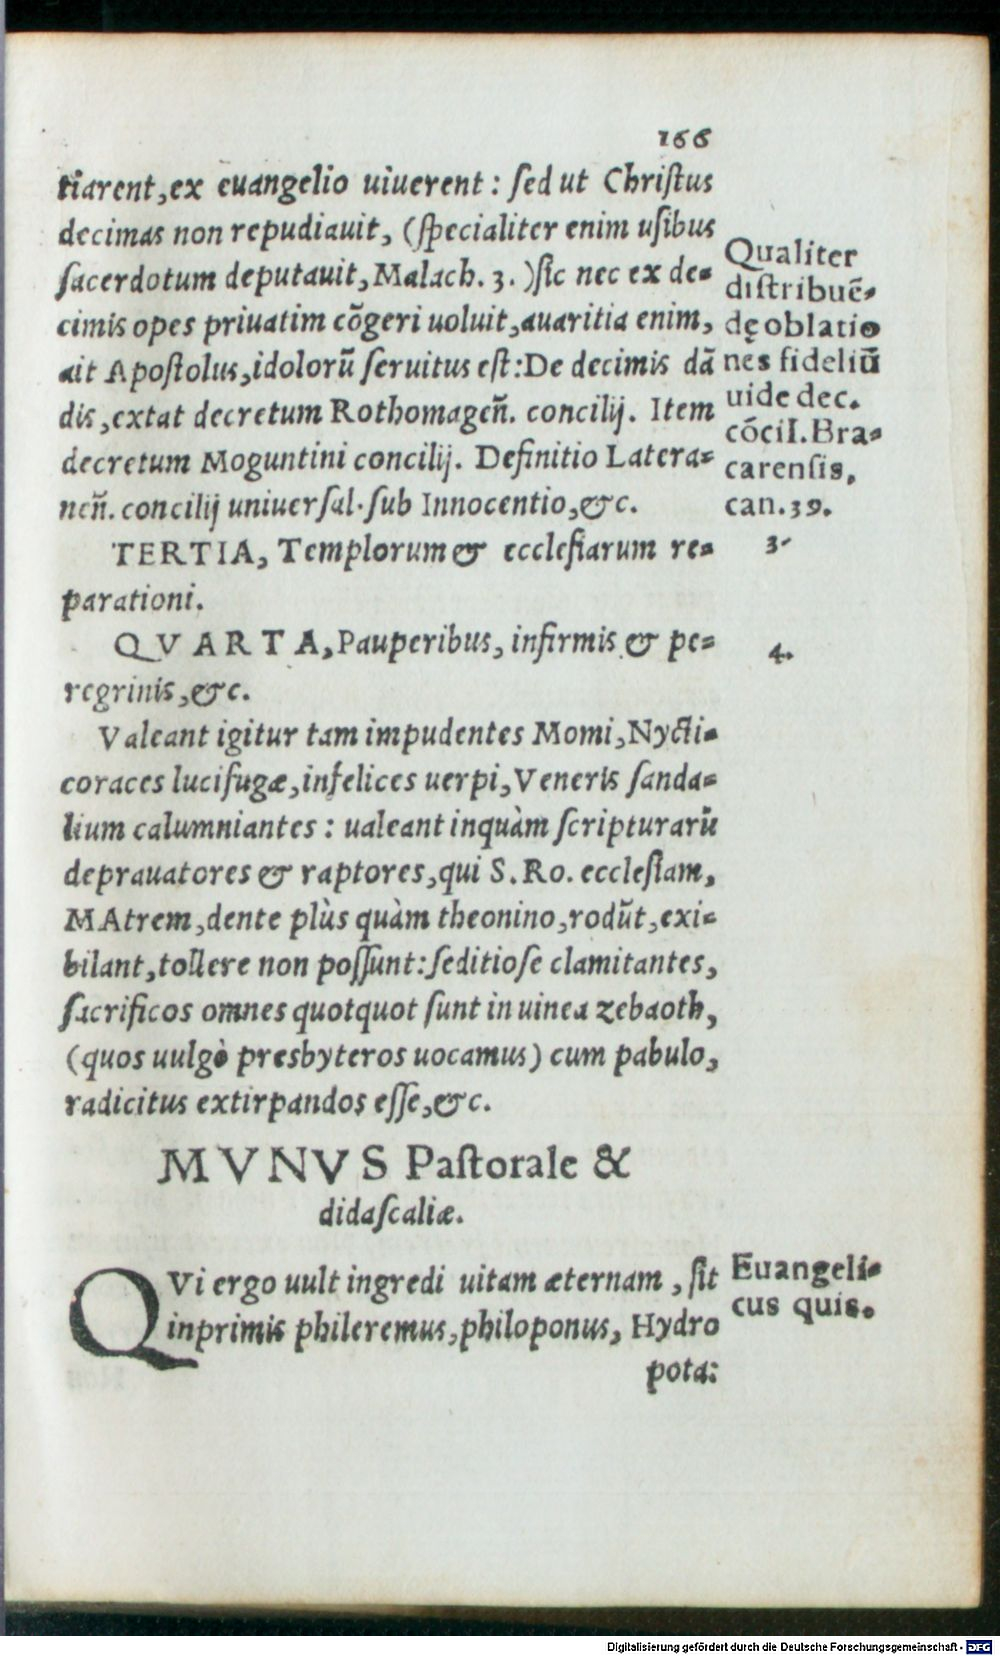 166
tiarent, ex euangelio uiuerent : sed ut Christus
decimas non repudiauit, (specialiter enim usibus
sacerdotum deputauit, Malach. 3. ) sic nec ex de=
cimis opes priuatim cōgeri uoluit, auaritia enim,
ait Apostolus, idolorū seruitus est: De decimis dā
dis, extat decretum Rothomageñ. concilij. Item
decretum Moguntini concilij. Definitio Latera=
neñ. concilij uniuersal. sub Innocentio, &c.
Qualiter
distribuē=
dę oblatio
nes fideliū
uide dec.
cōcil. Bra=
carensis,
can. 39.
TERTIA, Templorum & ecclesiarum re=
parationi.
3.
QVARTA, Pauperibus, infirmis & pe=
regrinis, &c.
4.
Valeant igitur tam impudentes Momi, Nycti=
coraces lucifugæ, infelices uerpi, Veneris sanda=
lium calumniantes : ualeant inquàm scripturarū
deprauatores & raptores, qui S. Ro. ecclesiam,
MAtrem, dente plùs quàm theonino, rodūt, exi=
bilant, tollere non possunt: seditiose clamitantes,
sacrificos omnes quotquot sunt in uinea zebaoth,
(quos uulgò presbyteros uocamus) cum pabulo,
radicitus extirpandos esse, &c.
MVNVS Pastorale &
didascaliæ.
QVi ergo uult ingredi uitam æternam, sit
inprimis phileremus, philoponus, Hydro
pota:
Euangeli=
cus quis.
Digitalisierung gefördert durch die Deutsche Forschungsgemeinschaft - DFG